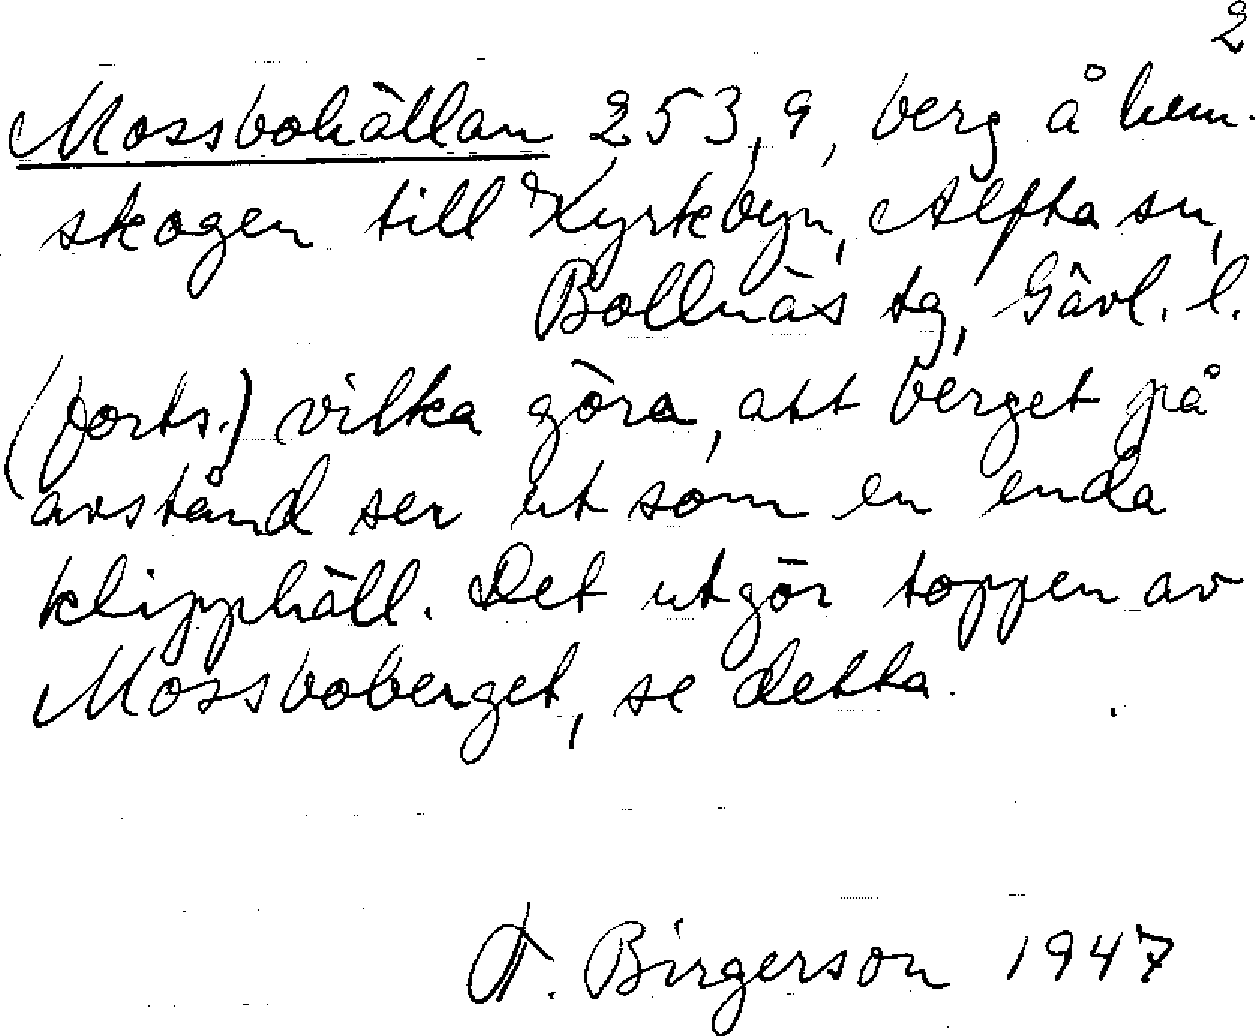 2
Mossbohällan 253,9, berg å hem-
skogen till Kyrkbyn, Alfta sn,
Bollnäs tg, Gävl. l.
(forts.) vilka göra, att berget på
avstånd ser ut som en enda
klipphäll. Det utgör toppen av
Mossboberget, se detta.
F. Birgerson 1947